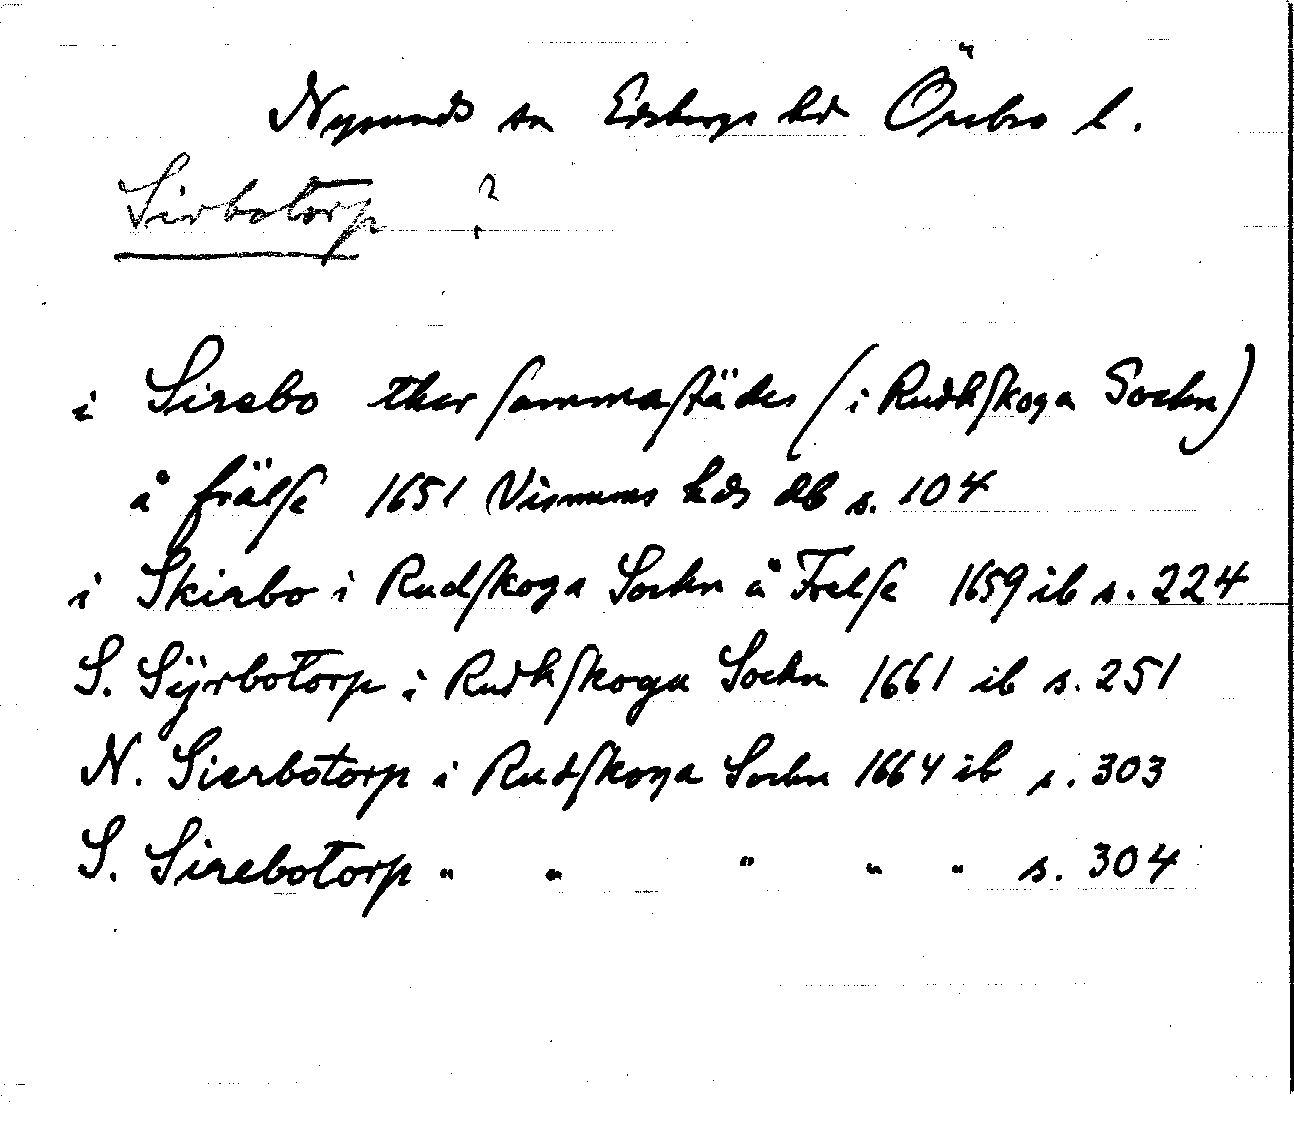 Nysunds sn Edsbergs hd Örebro l.
Sirbotorp ?
i Sirebo ther sammastädes (i Rudhskoga Sochn)
å frälse 1651 Visnums hds db s. 104
i Skirbo i Rudskoga Sochn å Frelse 1659 ib s. 224
S. Sÿrbotorp i Rudhskoga Sochn 1661 ib s. 251
N. Sierbotorp i Rudskoga Sochn 1664 ib s. 303
S. Sirebotorp " " " " " s. 304